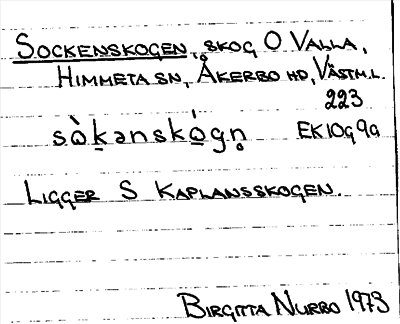 SOCKENSKOGEN, SKOG O VALLA,
HIMMETA SN, ÅKERBO HD, VÄSTM.L.
223
sò̱kənskó̱gn̥ EK 10g 9a
LIGGER S KAPLANSSKOGEN.
BIRGITTA NURBO 1973